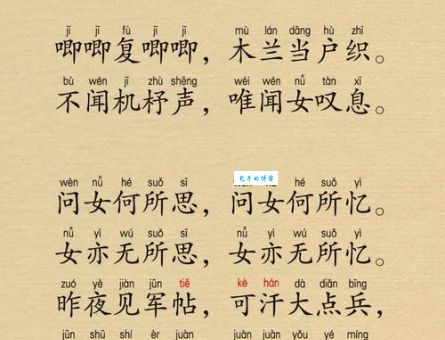 jī jī fù jī jī mù lán dāng hù zhī
唧唧复唧唧，木兰当户织。
bù wén jī zhù shēng wéi wén nǚ tàn xī
不闻机杼声，唯闻女叹息。
包子的博客
wèn nǚ hé suǒ sī nǚ hé suǒ yì
问女何所思，问女何所忆。
nǚ yì wú suǒ sī nǚ yì wú suǒ yì
女亦无所思，女亦无所忆。
zuó yè jiàn jūn tiě kè hán dà diǎn bīng
昨夜见军帖，可汗大点兵，
jūn shū shí èr juàn juàn juàn yǒu yé míng